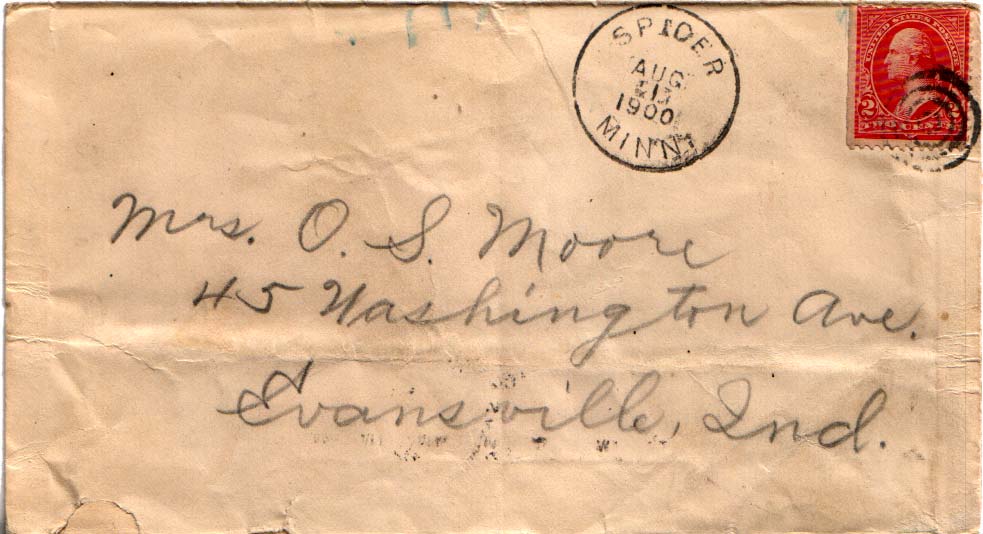 SPIDER
AUG
13
1900
MINN.
UNITED STATES POSTAGE
2 2
TWO CENTS
Mrs. O. S. Moore
45 Washington Ave.
Evansville, Ind.